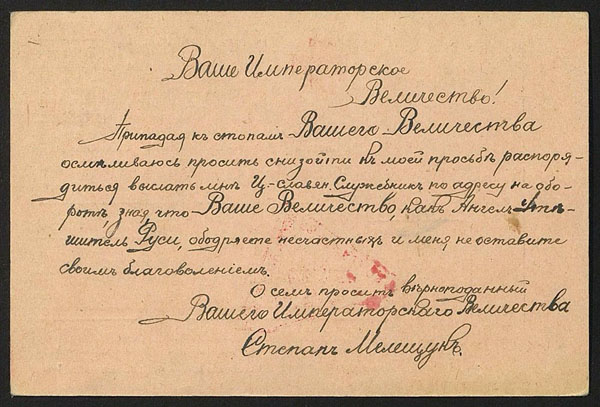 Ваше Императорское
Величество!
Припадая къ стопамъ Вашего Величества
осмѣливаюсь просить снизойти къ моей просьбѣ распоря-
диться выслать мнѣ Ц-славян. Служебникъ по адресу на обо-
ротѣ, зная, что Ваше Величество какъ Ангелъ Утѣ-
шитель Руси, ободряете несчастныхъ и меня не оставите
своимъ благоволеніемъ.
О семъ проситъ вѣрноподанный
Вашего Императорскаго Величества
Степанъ Мелещукъ.